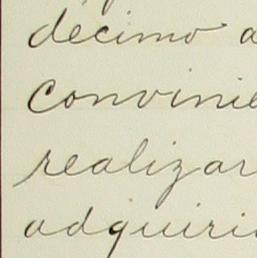 decimo a
convinie
realizar
adquiri